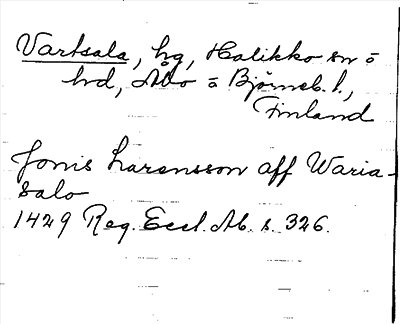 Vartsala, hg, Halikko sn o
hd, Åbo o Björneb. l.,
Finland
Jonis Larensson aff Waria-
salo
1429 Reg. Eccl. Ab. s. 326.